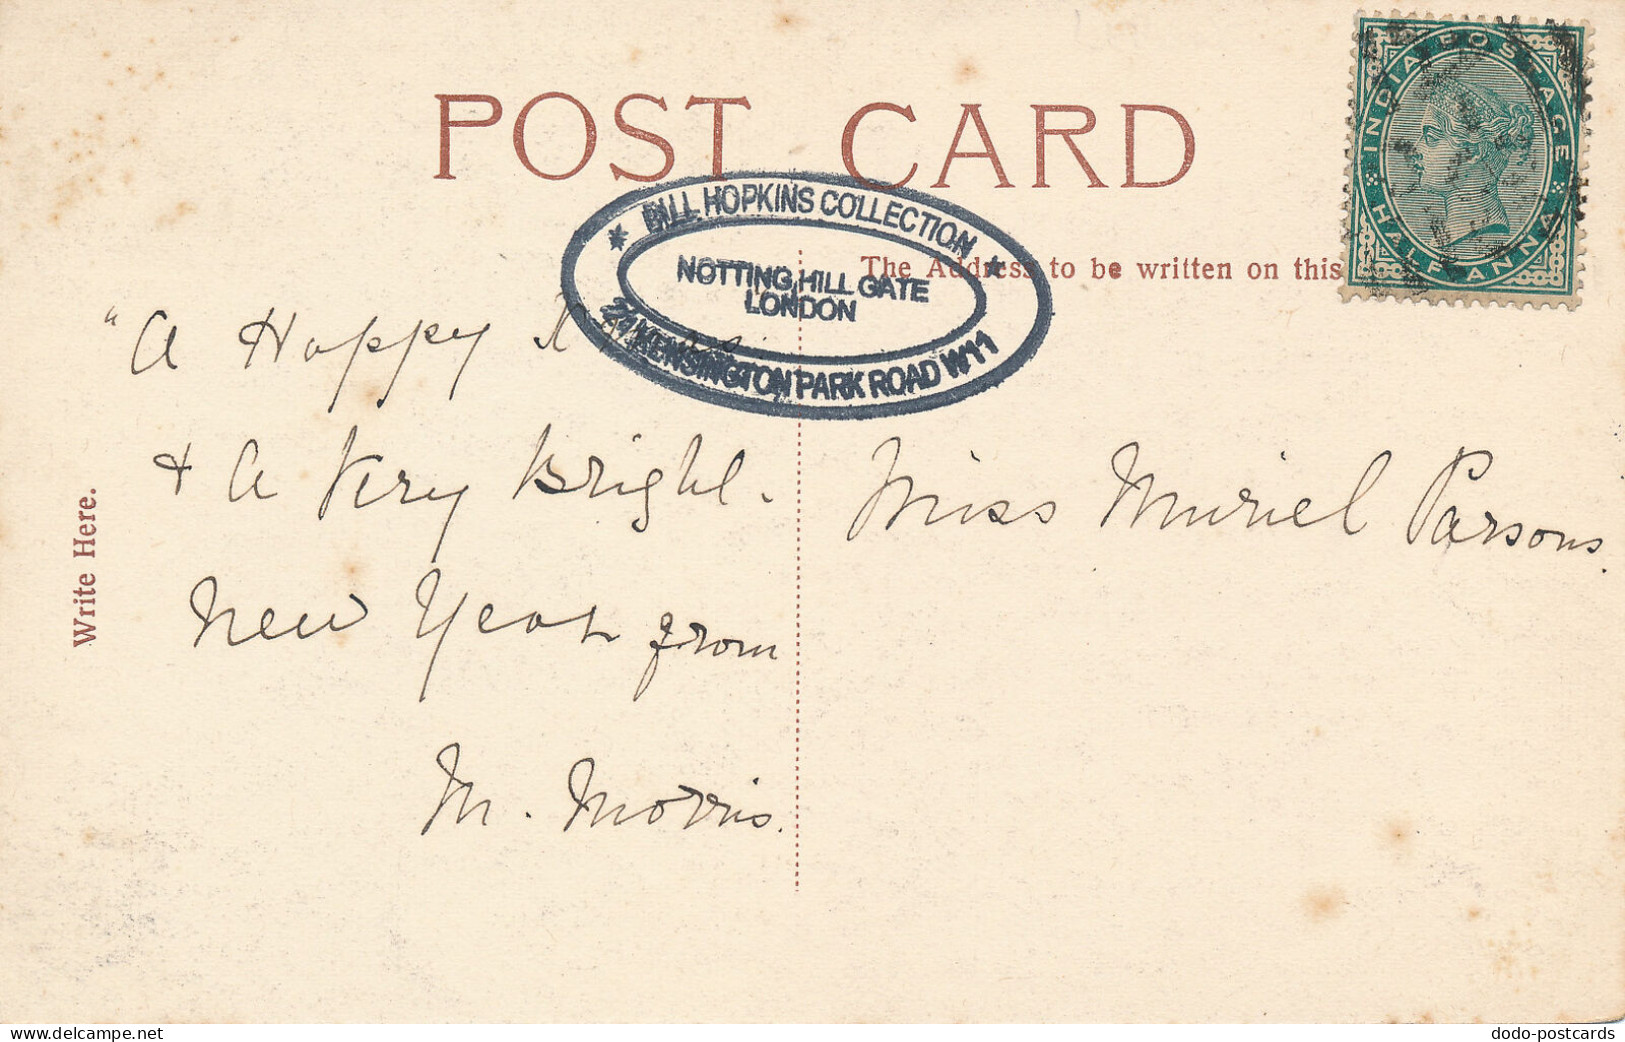 POST CARD
INDIA POSTAGE
HALF ANNA
BILL HOPKINS COLLECTION
NOTTING HILL GATE
LONDON
KENSINGTON PARK ROAD W11
The Address to be written on this
Write Here.
"A Happy
+ A Very Bright.
New Year from
M. Morris.
Miss Muriel Parsons.
Website: www.delcampe.net
dodo-postcards